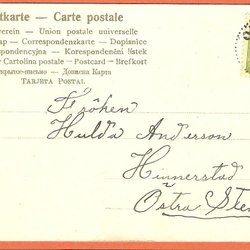 tkarte – Carte postale
verein – Union postale universelle
ap – Correspondenzkarte – Dopisnice
spondencyjna – Korespondenční lístek
Cartolina postale – Postcard – Brefkort
крытое-письмо – Дописна Карта
TARJETA POSTAL
Fröken
Hulda Anderson
Hinnerstad
Östra Sten